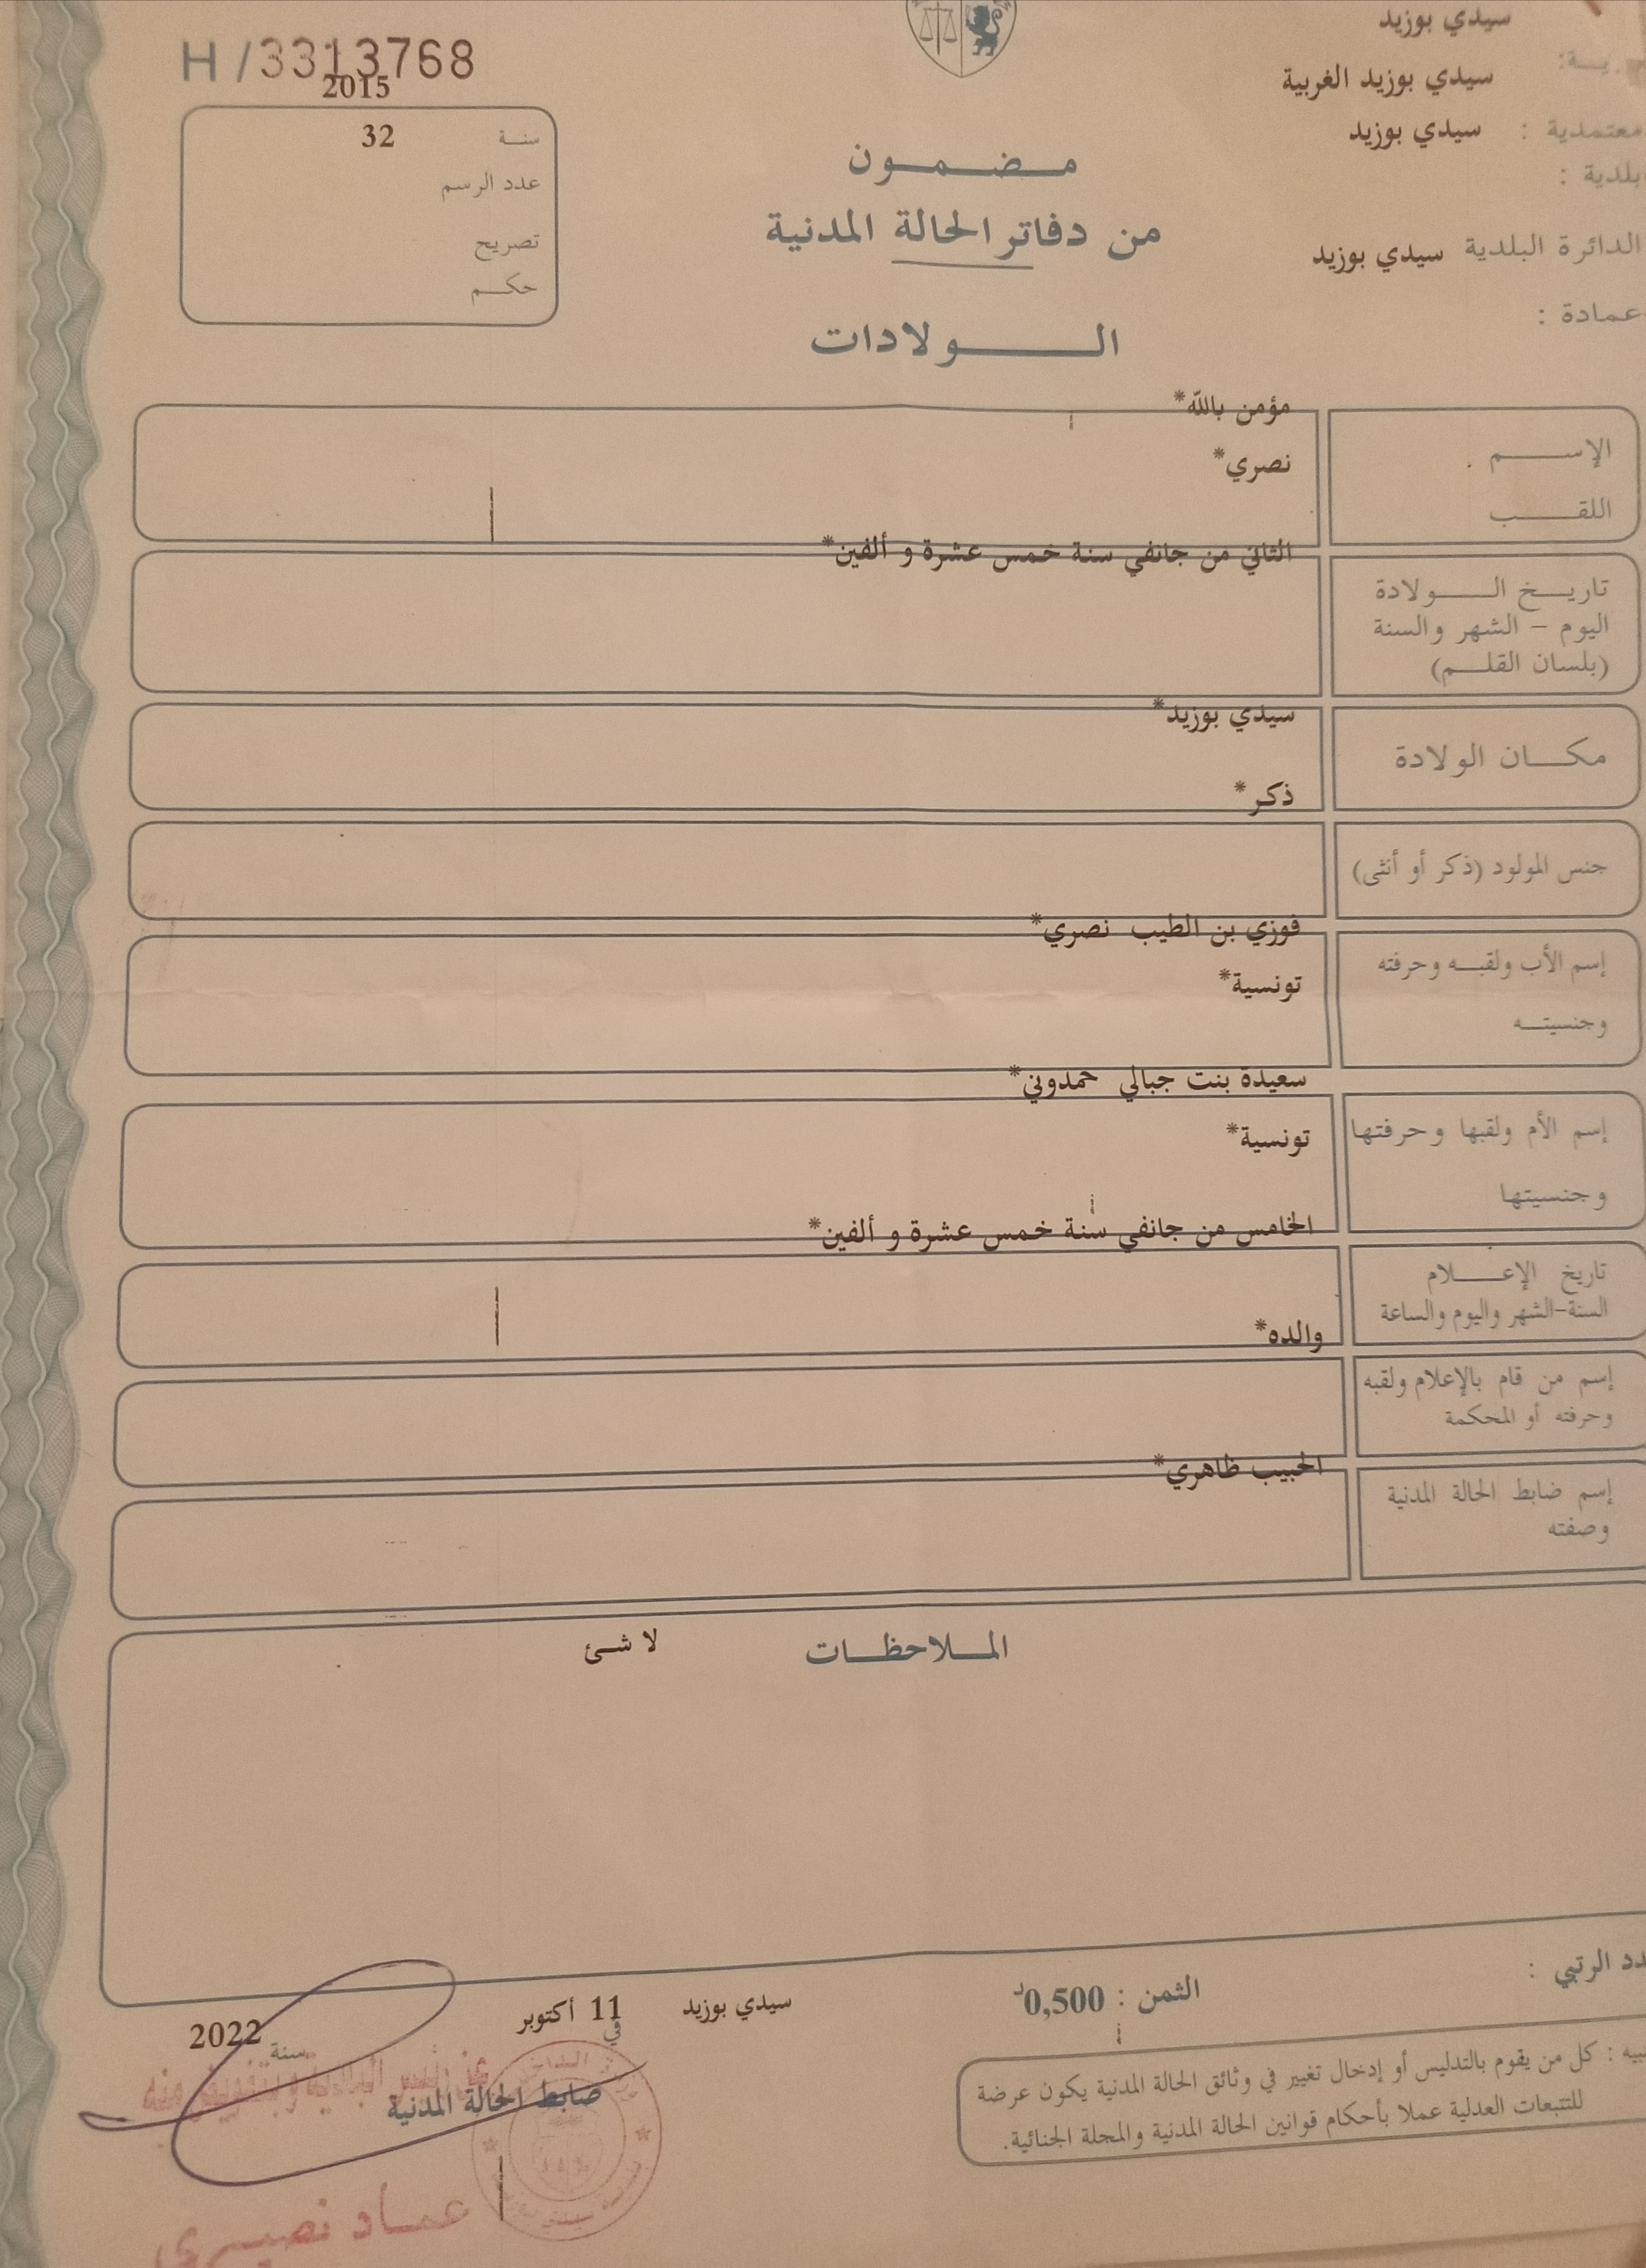 سيدي بوزيد
سيدي بوزيد الغربية
معتمدية : سيدي بوزيد
بلدية :
الدائرة البلدية سيدي بوزيد
عمادة :
H/3313768
2015
سنة 32
عدد الرسم
تصريح
حكم
مضمون
من دفاتر الحالة المدنية
الولادات
مؤمن بالله*
الإسم
نصري*
اللقب
الثاني من جانفي سنة خمس عشرة و ألفين*
تاريخ الولادة
اليوم - الشهر والسنة
(بلسان القلم)
سيدي بوزيد*
مكان الولادة
ذكر*
جنس المولود (ذكر أو أنثى)
فوزي بن الطيب نصري*
إسم الأب ولقبه وحرفته
تونسية*
وجنسيته
سعيدة بنت جبالي حمدوني*
إسم الأم ولقبها وحرفتها
تونسية*
وجنسيتها
الخامس من جانفي سنة خمس عشرة و ألفين*
تاريخ الإعلام
السنة-الشهر واليوم والساعة
والده*
إسم من قام بالإعلام ولقبه
وحرفته أو المحكمة
الحبيب ظاهري*
إسم ضابط الحالة المدنية
وصفته
الملاحظات لا شئ
الرتبي :
الثمن : 0,500د
سيدي بوزيد في 11 أكتوبر سنة 2022
عن رئيس البلدية وبتفويض منه
ضابط الحالة المدنية
عماد نصيري
كل من يقوم بالتدليس أو إدخال تغيير في وثائق الحالة المدنية يكون عرضة
للتتبعات العدلية عملا بأحكام قوانين الحالة المدنية والمجلة الجنائية.